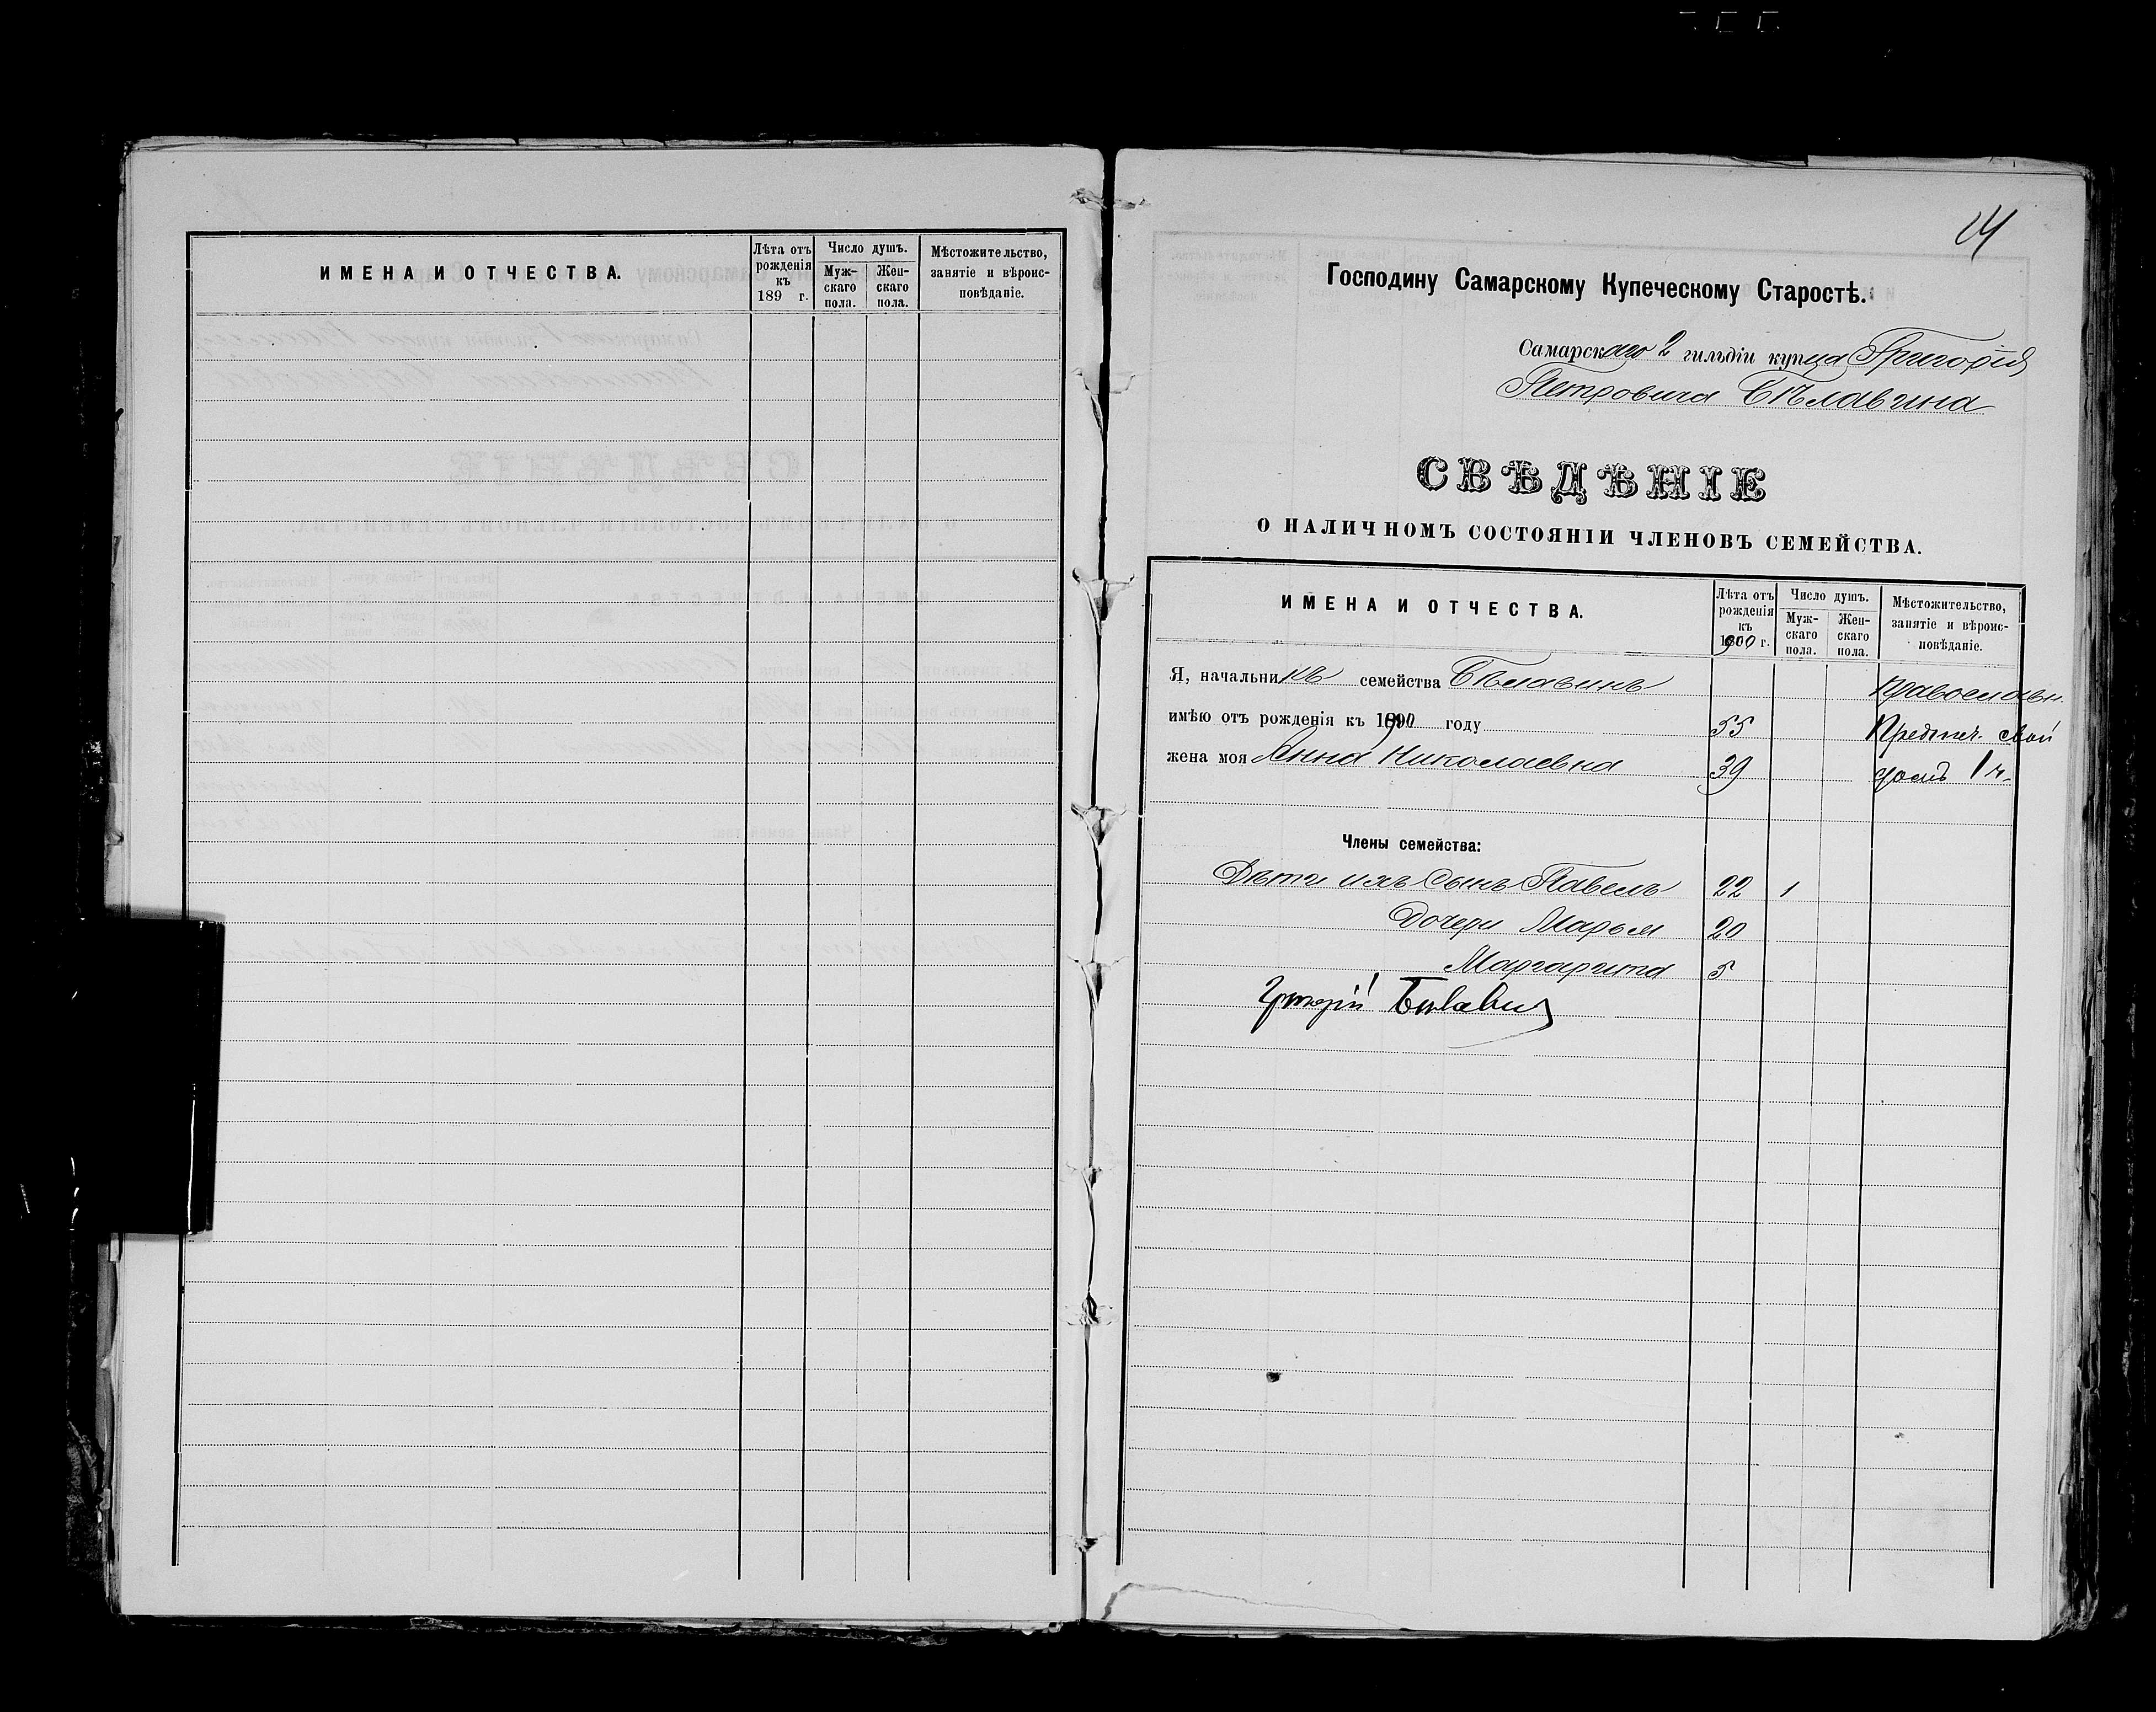 ИМЕНА И ОТЧЕСТВА.
Лѣта отъ рожденія къ 189 г.
Число душъ.
Мужскаго пола.
Женскаго пола.
Мѣстожительство, занятіе и вѣроисповѣданіе.
14
Господину Самарскому Купеческому Старостѣ.
Самарскаго 2 гильдіи купца Григорія
Петровича Бѣлавина
СВѢДѢНІЕ
О НАЛИЧНОМЪ СОСТОЯНІИ ЧЛЕНОВЪ СЕМЕЙСТВА.
ИМЕНА И ОТЧЕСТВА.
Лѣта отъ рожденія къ 1900 г.
Число душъ.
Мужскаго пола.
Женскаго пола.
Мѣстожительство, занятіе и вѣроисповѣданіе.
Я, начальникъ семейства Бѣлавинъ Православн.
имѣю отъ рожденія къ 1900 году 55 свой
жена моя Анна Николаевна 39 домъ 1 ч.
Члены семейства:
Дѣти ихъ Сынъ Павелъ 22 1
Дочери Марья 20
Маргарита 5
Григорій Белавин